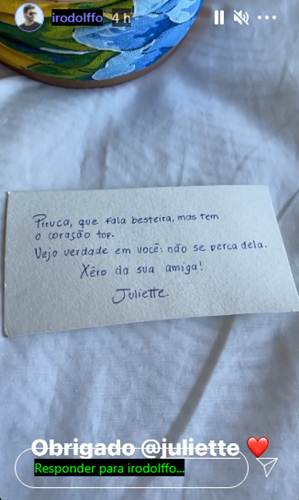 irodolffo 4 h
Piruca, que fala besteira, mas tem
o coração top.
Vejo verdade em você: não se perca dela.
Xêro da sua amiga!
Juliette
Obrigado @juliette ❤️
Responder para irodolffo...